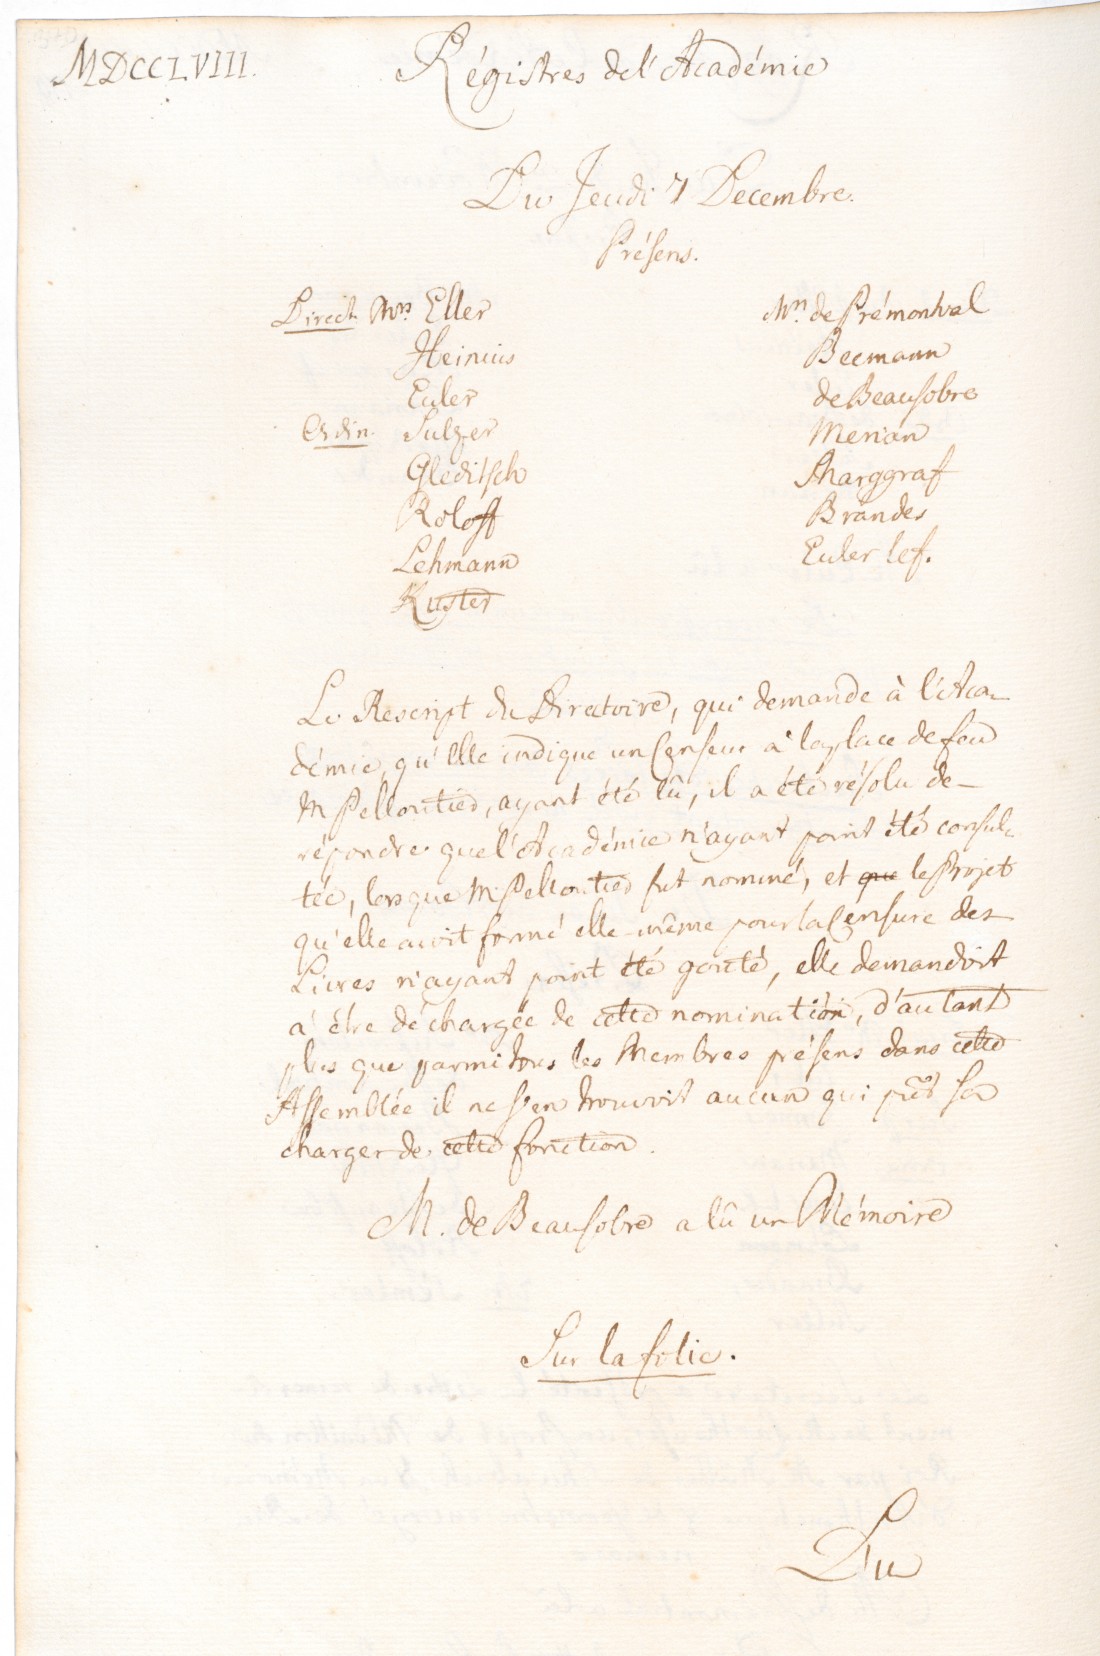 MDCCLVIII.
Régistres de l'Académie
Du Jeudi 7 Decembre.
Présens.
Direct. Mrs Eller
Heinius
Euler
Ordin. Sulzer
Gleditsch
Roloff
Lehmann
Kuster
Mrs de Prémontval
Becmann
de Beausobre
Merian
Marggraf
Brandes
Euler le f.
Le Rescript du Directoire, qui demande à l'Aca-
démie, qu'Elle indique un Censeur à la place de feu
M Pelloutier, ayant été lû, il a été résolu de
répondre que l'Académie n'ayant point été consul-
tée, lorsque M. Pelloutier fut nommé, et que le Projet
qu'elle avoit formé elle-même pour la Censure des
Livres n'ayant point été gouté, elle demandoit
à être déchargée de cette nomination, d'autant
plus que parmi tous les Membres présens dans cette
Assemblée il ne s'en trouvoit aucun qui pût se
charger de cette fonction.
M. de Beausobre a lû un Mémoire
Sur la folie.
Du